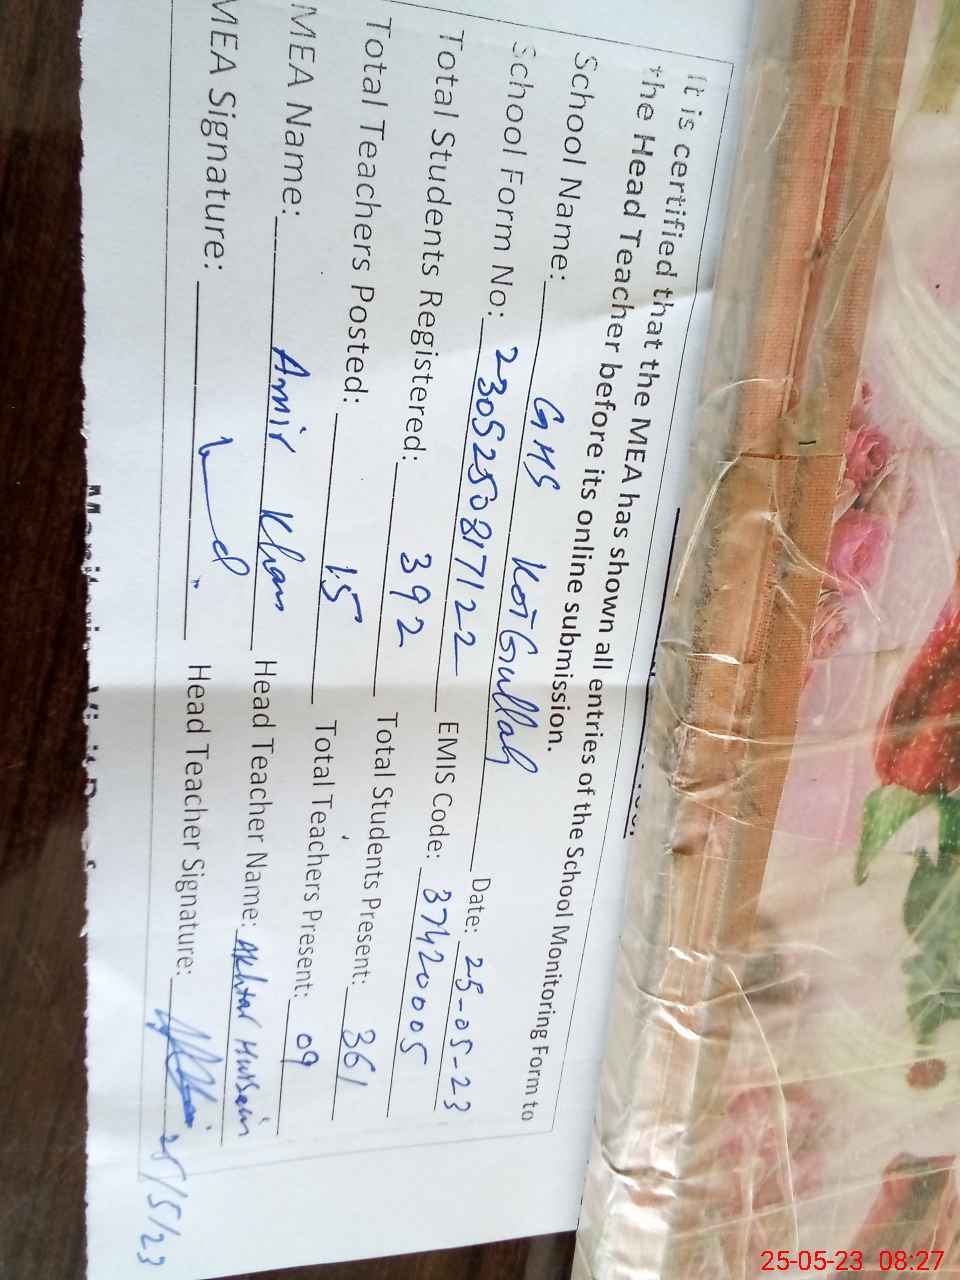 It is certified that the MEA has shown all entries of the School Monitoring Form to
the Head Teacher before its online submission.
School Name: GHS Kot Gullah Date: 25-05-23
School Form No: 230525087122 EMIS Code: 37420005
Total Students Registered: 392 Total Students Present: 361
Total Teachers Posted: 15 Total Teachers Present: 09
MEA Name: Amir Khan Head Teacher Name: Akhtar Hussain
MEA Signature: Head Teacher Signature: 25/5/23
25-05-23 08:27